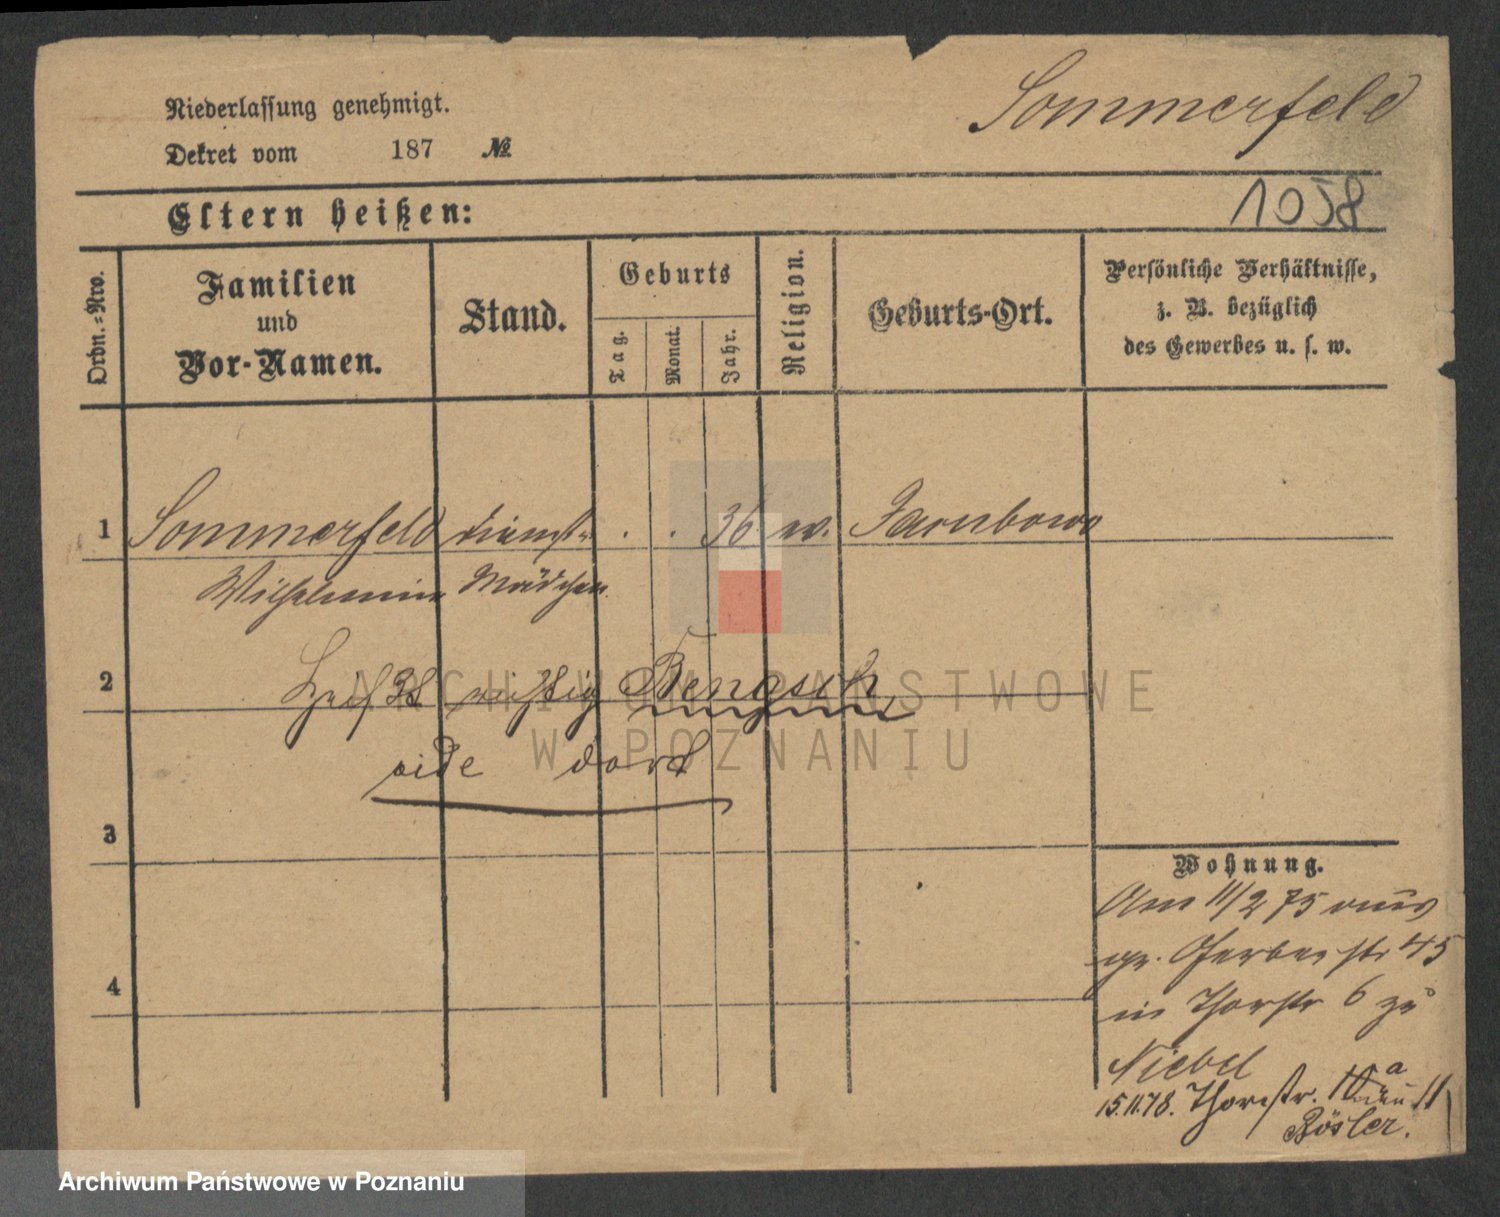 Niederlassung genehmigt.
Dekret vom 187 №
Sommerfeld
1058
Eltern heißen:
Ordn.-Nro.
Familien
und
Vor-Namen.
Stand.
Geburts
Tag.
Monat.
Jahr.
Religion.
Geburts-Ort.
Persönliche Verhältnisse,
z. B. bezüglich
des Gewerbes u. s. w.
1 Sommerfeld Dienst- . . 36 ev. Jarubowo
Wilhelmine Mädchen
2 heißt richtig Bengsch
vide dort
3
4
Wohnung.
Am 11/2 75 aus
gr. Gerberstr 45
in Thorstr 6 zu
Niebel
15.11.78. Thorstr. 10a 11
Rösler.
ARCHIWUM PAŃSTWOWE
W POZNANIU
Archiwum Państwowe w Poznaniu